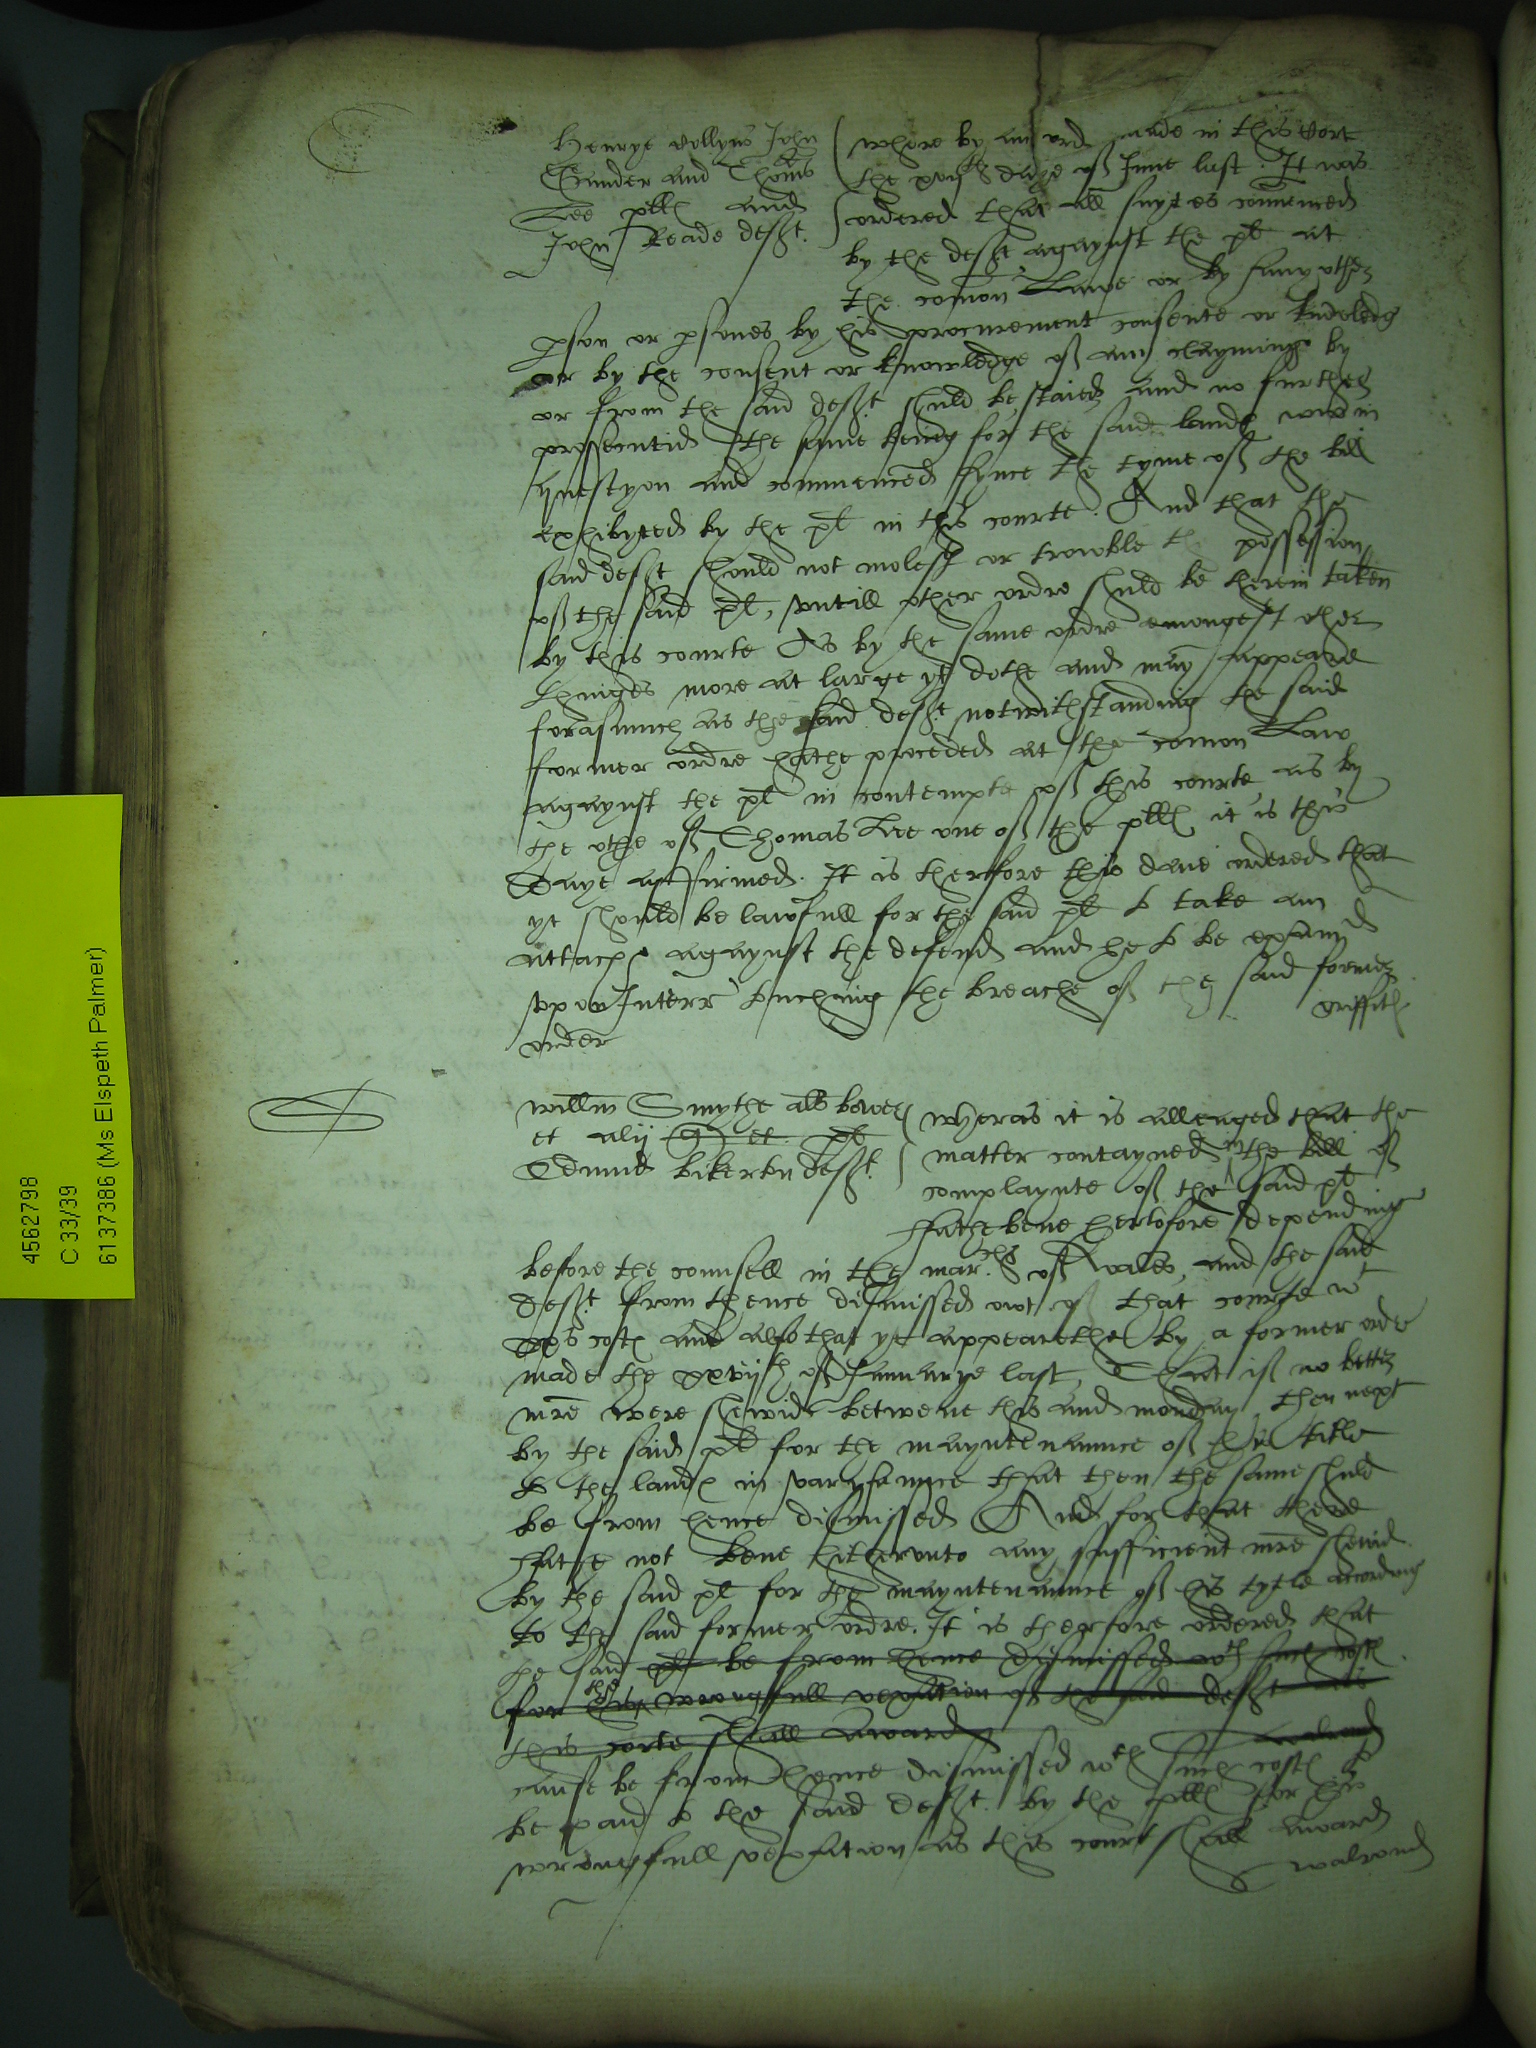 Henrye Collyns John
Gunder and Thoms
Lee pltts and
John Reade defft.
where by an ordr made in this Cort
the xviijth daye of June last It was
ordered that all suytes comenced
by the defft agaynst the pl at
the comon Lawe or by any other
pson or psones by his procurement consente or knoledg
or by the consent or knowledge of any clayminge by
or from the said defft shuld be staied and no further
prosecutid the same being for the said lands now in
questyon and commenced synce the tyme of the bill
exhibyted by the pl in this courte. And that the
said defft should not molest or trowble th possession
of the said pl, untill other ordre shuld be therin taken
by this courte As by the same ordre emongest other
thinges more at large yt dothe and may appeare
forasmuch as the said defft notwithstanding the said
former ordre hathe proceded at the comon Law
agaynst the pl in contempte of this courte as by
the othe of Thomas Lee one of the pltts it is this
Daye affirmed. It is therfore this daie ordered that
yt should be lawfull for the said pl to take an
attach agaynst the defend and he to be examd
upon Interr touching the breache of the said former
order
griffith
willm Smythe als bower
et alij pl
Edmund bikerton defft
Wheras it is alleaged that the
matter contayned in the bill of
complaynte of the said pl
hathe bene hertofore depending
before the counsell in the marches of Wales, and the said
defft from thence dismissed owt of that courte wt
his costs and also that yt appearethe by a former ordr
made the xxvijth of January last, That if no better
mre were shewid betwene this and monday then next
by the said pl for the mayntenaunce of his title
to the lands in varyaunce that then the same shuld
be from hence dismissed And for that there
hathe not bene hitherunto any sufficient mre shewid
by the said pl for the mayntenaunce of his tytle according
to the said former ordre. It is therfore ordered that
the said pl be from hence dismissed wth such costs
for the wrongfull vexation of the said defft as
this corte shall award
walrond
cause be from hence dismissed wth such costs to
be paid to the said defft. by the pltts for his
wrongfull vexation as this court shall award
walrond
4562798
C 33/39
6137386 (Ms Elspeth Palmer)